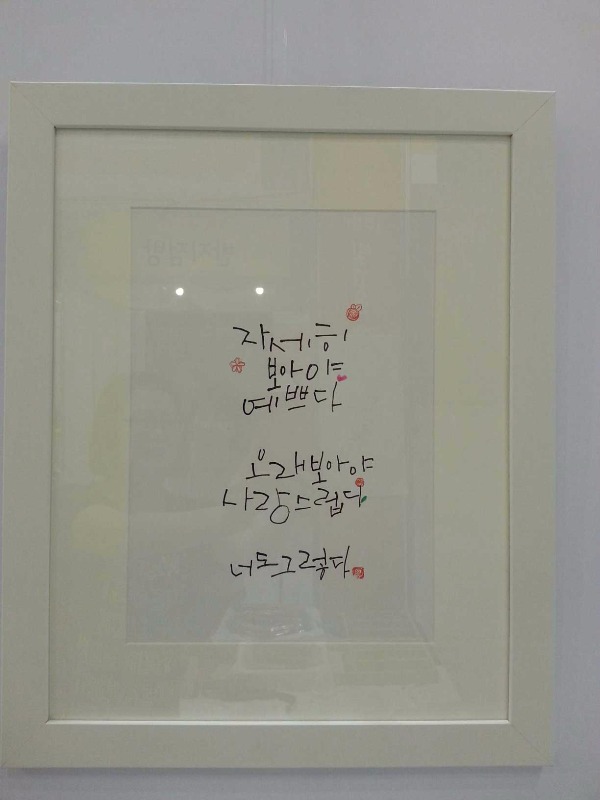 자세히
보아야
예쁘다
오래보아야
사랑스럽다
너도그렇다